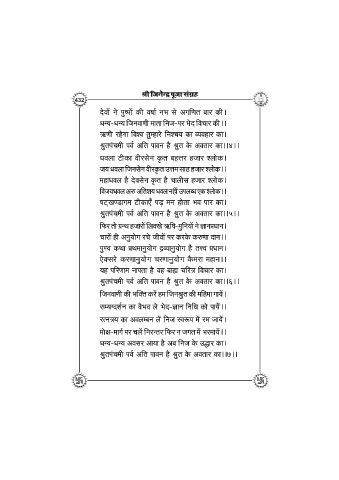 श्री जिनेन्द्र पूजा संग्रह
432
देवों ने पुष्पों की वर्षा नभ से अगणित बार की।
धन्य-धन्य जिनवाणी माता निज-पर भेद विचार की।।
ऋणी रहेगा विश्व तुम्हारे निश्चय का व्यवहार का।
श्रुतपंचमी पर्व अति पावन है श्रुत के अवतार का।।४।।
धवला टीका वीरसेन कृत बहत्तर हजार श्लोक।
जय धवला जिनसेन वीरकृत उत्तम साठ हजार श्लोक।।
महाधवल है देवसेन कृत है चालीस हजार श्लोक।
विजयधवल अरु अतिशय धवल नहीं उपलब्ध एक श्लोक।।
षट्खण्डागम टीकाएँ पढ़ मन होता भव पार का।
श्रुतपंचमी पर्व अति पावन है श्रुत के अवतार का।।५।।
फिर तो ग्रन्थ हजारों लिक्खे ऋषि-मुनियों ने ज्ञानप्रधान।
चारों ही अनुयोग रचे जीवों पर करके करुणा दान।।
पुण्य कथा प्रथमानुयोग द्रव्यानुयोग है तत्त्व प्रधान।
ऐक्सरे करणानुयोग चरणानुयोग कैमरा महान।।
यह परिणाम नापता है वह बाह्य चरित्र विचार का।
श्रुतपंचमी पर्व अति पावन है श्रुत के अवतार का।।६।।
जिनवाणी की भक्ति करें हम जिनश्रुत की महिमा गायें।
सम्यग्दर्शन का वैभव ले भेद-ज्ञान निधि को पायें।।
रत्नत्रय का अवलम्बन लें निज स्वरूप में रम जायें।
मोक्ष-मार्ग पर चलें निरन्तर फिर न जगत में भरमायें।।
धन्य-धन्य अवसर आया है अब निज के उद्धार का।
श्रुतपंचमी पर्व अति पावन है श्रुत के अवतार का।।७।।